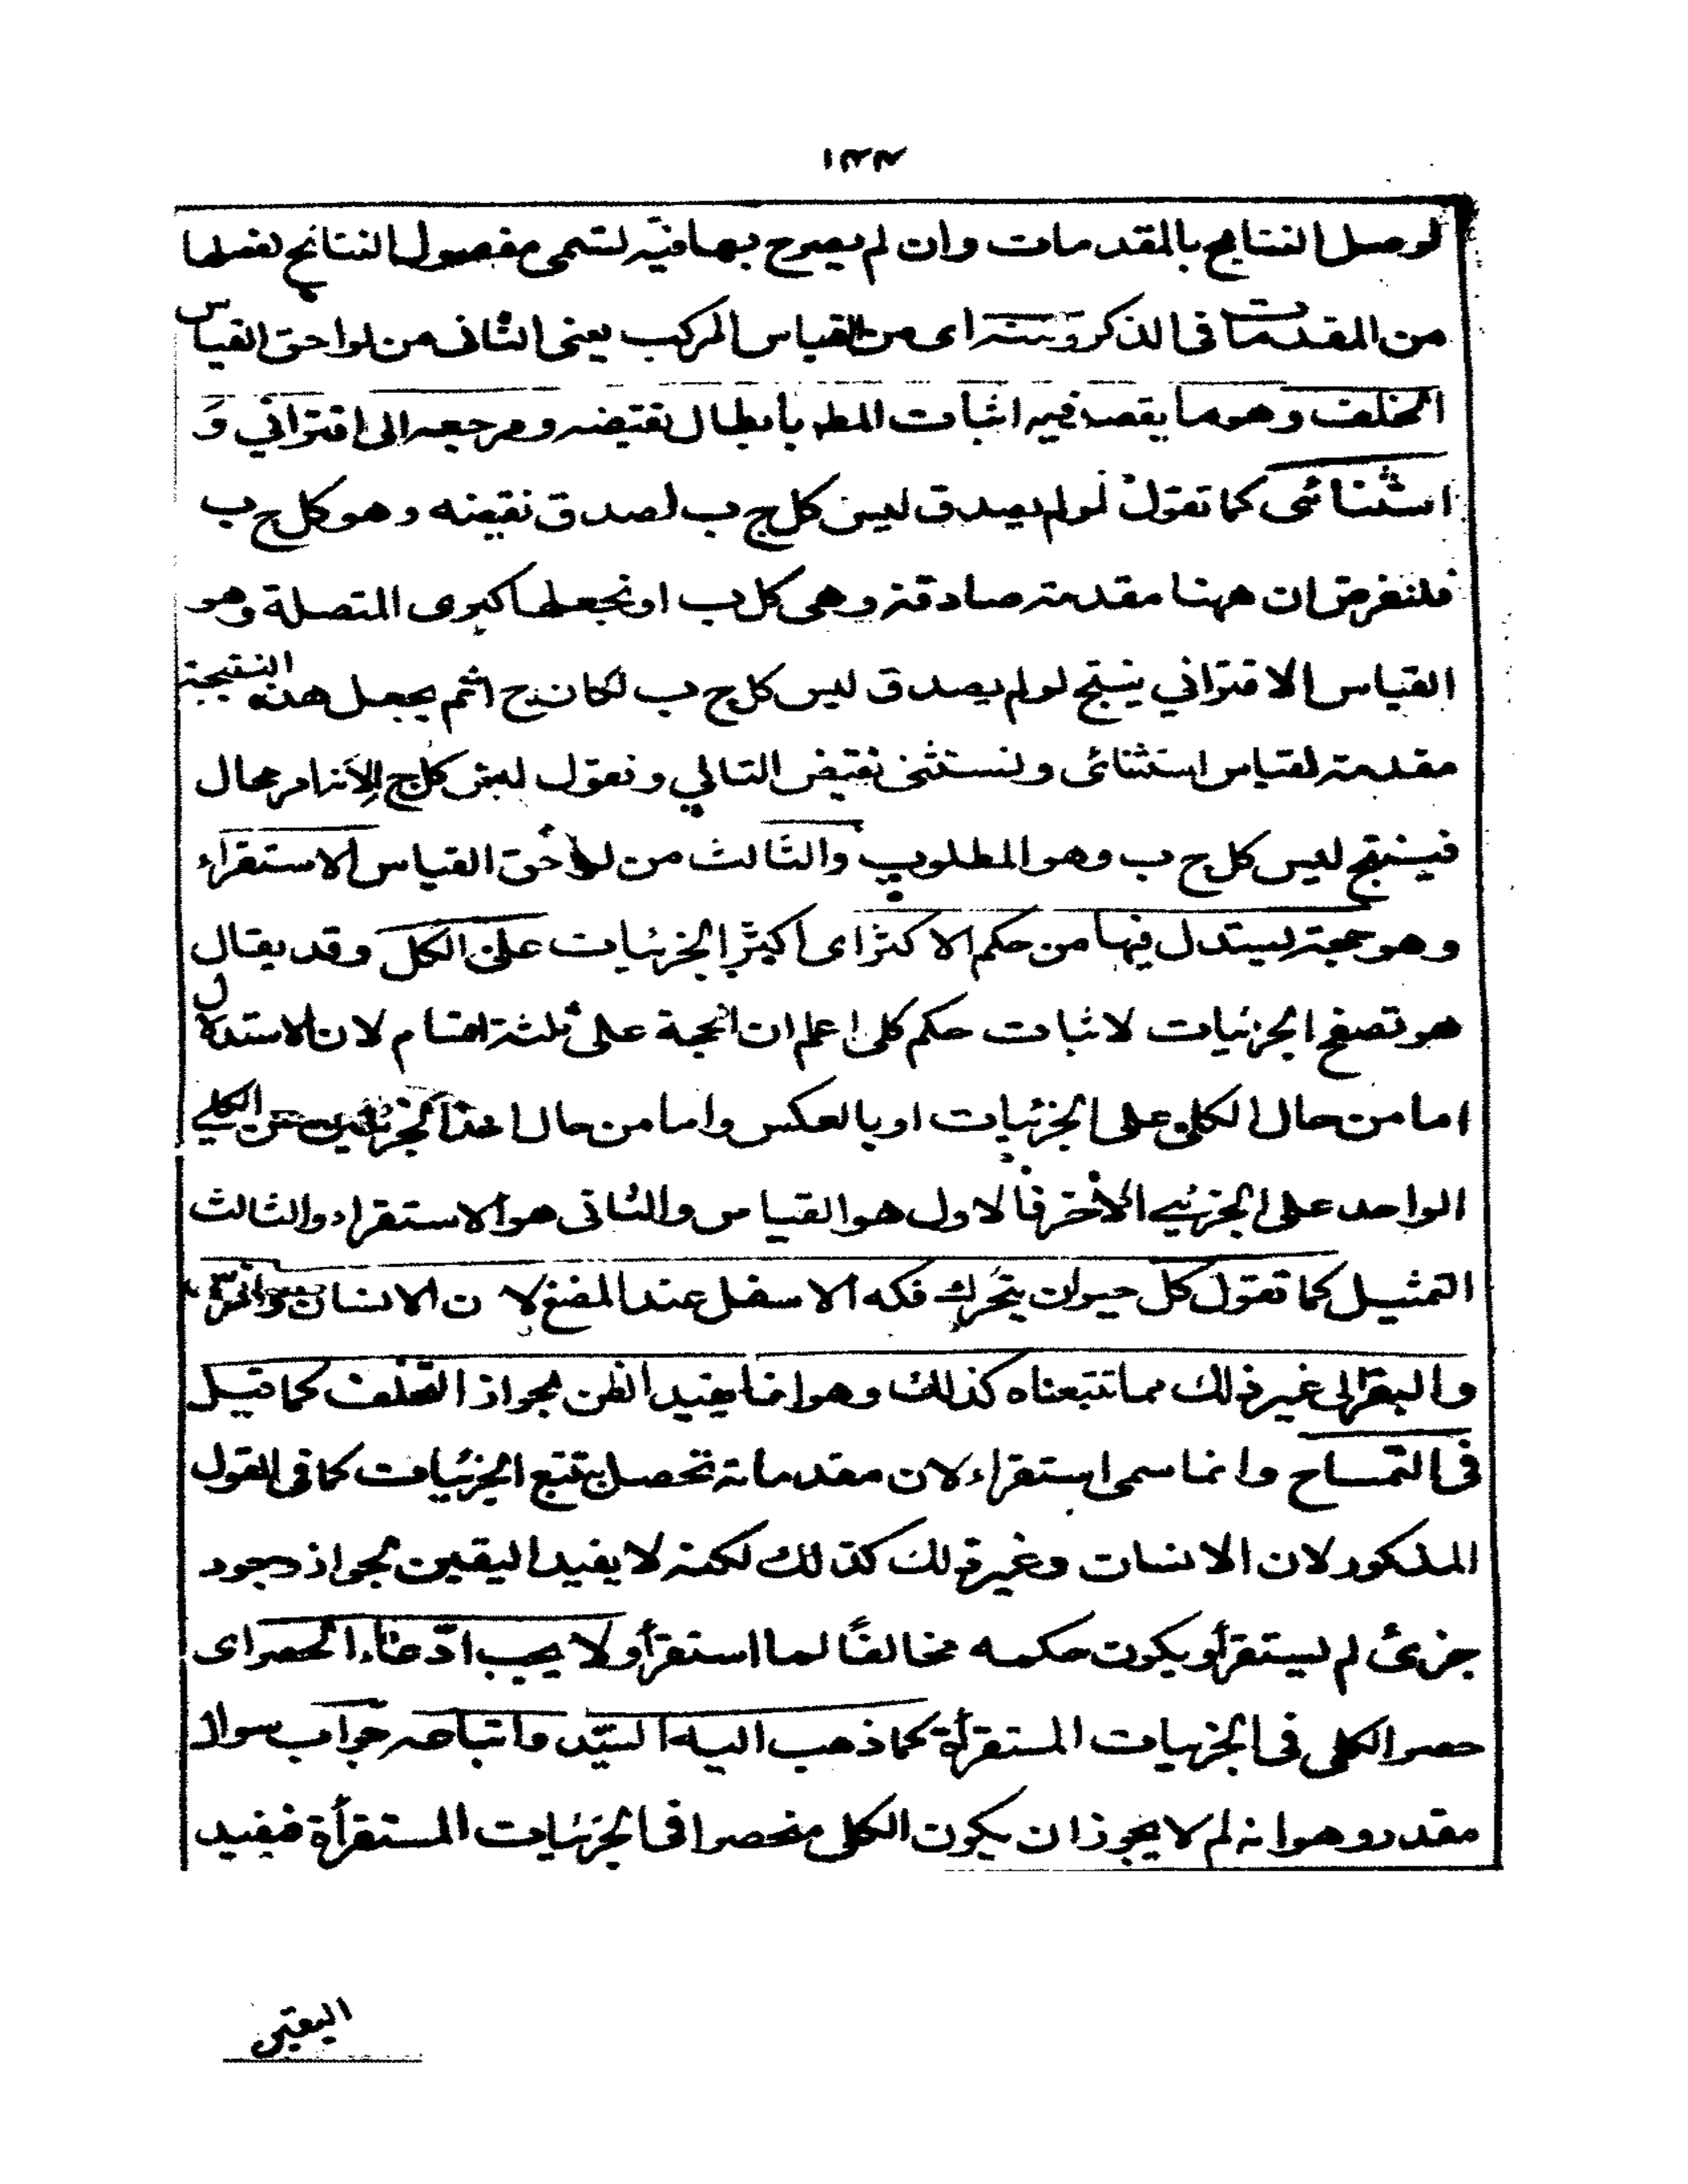 لوصل النتايج بالمقدمات وان لم يصرح بها فيه تسمى مفصول النتائج لفصلها
من المقدمات فى الذكر ومنه اى من القياس المركب يعنى الثانى من لواحق القياس
الخلف وهو ما يقصد فيه اثبات المط بابطال نقيضه ومرجعه الى اقتراني وَ
استثنائى كما تقول لو لم يصدق ليس كل ج ب لصدق نقيضه وهو كل ج ب
فلنفرض ان ههنا مقدمة صادقة وهى كل ب ا ونجعلها كبرى المتصلة وهو
القياس الاقتراني ينتج لو لم يصدق ليس كل ج ب لكان ج ا ثم يجعل هذه النتيجة
مقدمة لقياس استثنائى ونستثنى نقيض التالي ونقول ليس كل ج ا لانه امر محال
فينتج ليس كل ج ب وهو المطلوب والثالث من لواحق القياس الاستقراء
وهو حجة يستدل فيها من حكم الاكثر اى اكثر الجزئيات على الكل وقد يقال
هو تصفح الجزئيات لاثبات حكم كلى اعلم ان الحجة على ثلثة اقسام لان الاستدلال
اما من حال الكلى على الجزئيات او بالعكس واما من حال احد الجزئيين من الكلي
الواحد على الجزئي الاخر فالاول هو القياس والثانى هو الاستقراء والثالث
التمثيل كما تقول كل حيوان يتحرك فكه الاسفل عند المضغ لان الانسان والفرس
والبقر الى غير ذلك مما تتبعناه كذلك وهو انما يفيد الظن لجواز التخلف كما قيل
فى التمساح وانما سمى استقراء لان مقدماته تحصل بتتبع الجزئيات كما فى القول
المذكور لان الانسان وغير ذلك كذلك لكنه لا يفيد اليقين لجواز وجود
جزئ لم يستقرأ ويكون حكمه مخالفًا لما استقرأ ولا يجب ادّعاء الحصر اى
حصر الكلى فى الجزئيات المستقرأة كما ذهب اليه السيّد واتباعه جواب سوال
مقدر وهو انه لم لا يجوز ان يكون الكلى منحصرا فى الجزئيات المستقرأة فيفيد
اليقين